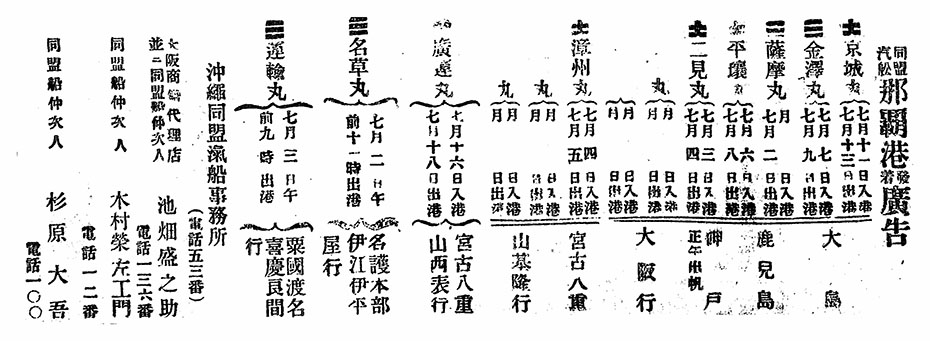 同盟汽舩那覇港發着廣告
京城丸 七月十一日入港 七月十三日出港
金澤丸 七月七日入港 七月九日出港
大島
薩摩丸 月 日入港 七月二日出港
鹿兒島
平壤丸 七月六日入港 七月八日出港
二見丸 七月三日入港 七月四日出港
神戸 正午出帆
丸 月 日入港 月 日出港
丸 月 日入港 月 日出港
大阪行
漳州丸 七月四日入港 七月五日出港
宮古八重
丸 月 日入港 月 日出港
丸 月 日入港 月 日出港
山基隆行
廣運丸 七月十六日入港 七月十八日出港
宮古八重山西表行
名草丸 七月二日午前十一時出港
名護本部伊江伊平屋行
運輸丸 七月三日午前九時出港
粟國渡名喜慶良間行
沖繩同盟滊船事務所
(電話五三番)
大阪商船代理店並ニ同盟船仲次人 池畑盛之助
電話一三六番
同盟船仲次人 木村榮左工門
電話一二番
同盟船仲次人 杉原大吾
電話一〇〇